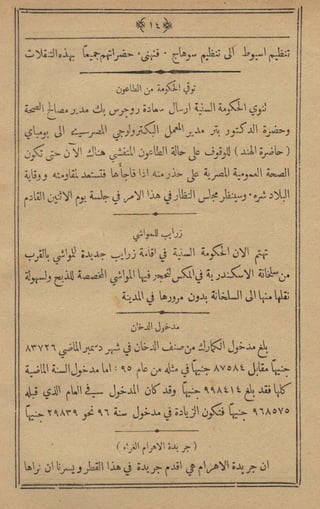 ﴿ ١٤ ﴾
تنظيم اسيوط الى تنظيم سوهاج ٠ فنهنى ٠ حضراتهم جميعاً بهذه التنقلات
توقي الحكومة من الطاعون
تنوي الحكومة السنية ارسال سعادة روجرس بك مدير مصالح الصحة
وحضرة الدكتور بتر مدير المعمل البكترولوجي المصريين الى بومباي
( حاضرة الهند ) للوقوف على حالة الطاعون المتفشي هناك الآن حتى تكون
الصحة العمومية المصرية على حذر منه اذا فاجأها فتستعد لمقاومته ووقاية
البلاد شره ٠ وسينظر مجلس النظار في هذا الامر في جلسة يوم الاثنين القادم
زرايب للمواشي
تهتم الان الحكومة السنية في اقامة زرايب جديدة للمواشي بالقرب
من سلخانة الاسكندرية في المكس لتحجر فيها المواشي المخصصة للذبح ولسهولة
نقلها منها الى السلخانة بدون مرورها في المدينة
مدخول الدخان
بلغ مدخول الكمارك من صنف الدخان في شهر دسمبر الماضي ٨٣٧٢٦
جنيهاً مقابل ٨٧٥٨٤ جنيهاً في مثله من عام ٩٥ : اما مدخول السنة الماضية
كلها فقد بلغ ٩٩٨٤١٤ جنيهاً وقد كان المدخول في العام الذي قبله
٩٦٨٥٧٥ جنيهاً فتكون الزيادة في مدخول سنة ٩٦ نحو ٢٩٨٣٩ جنيهاً
( جريدة الاهرام الغراء )
ان جريدة الاهرام هي اقدم جريدة في هذا القطر ويسرنا ان نراها